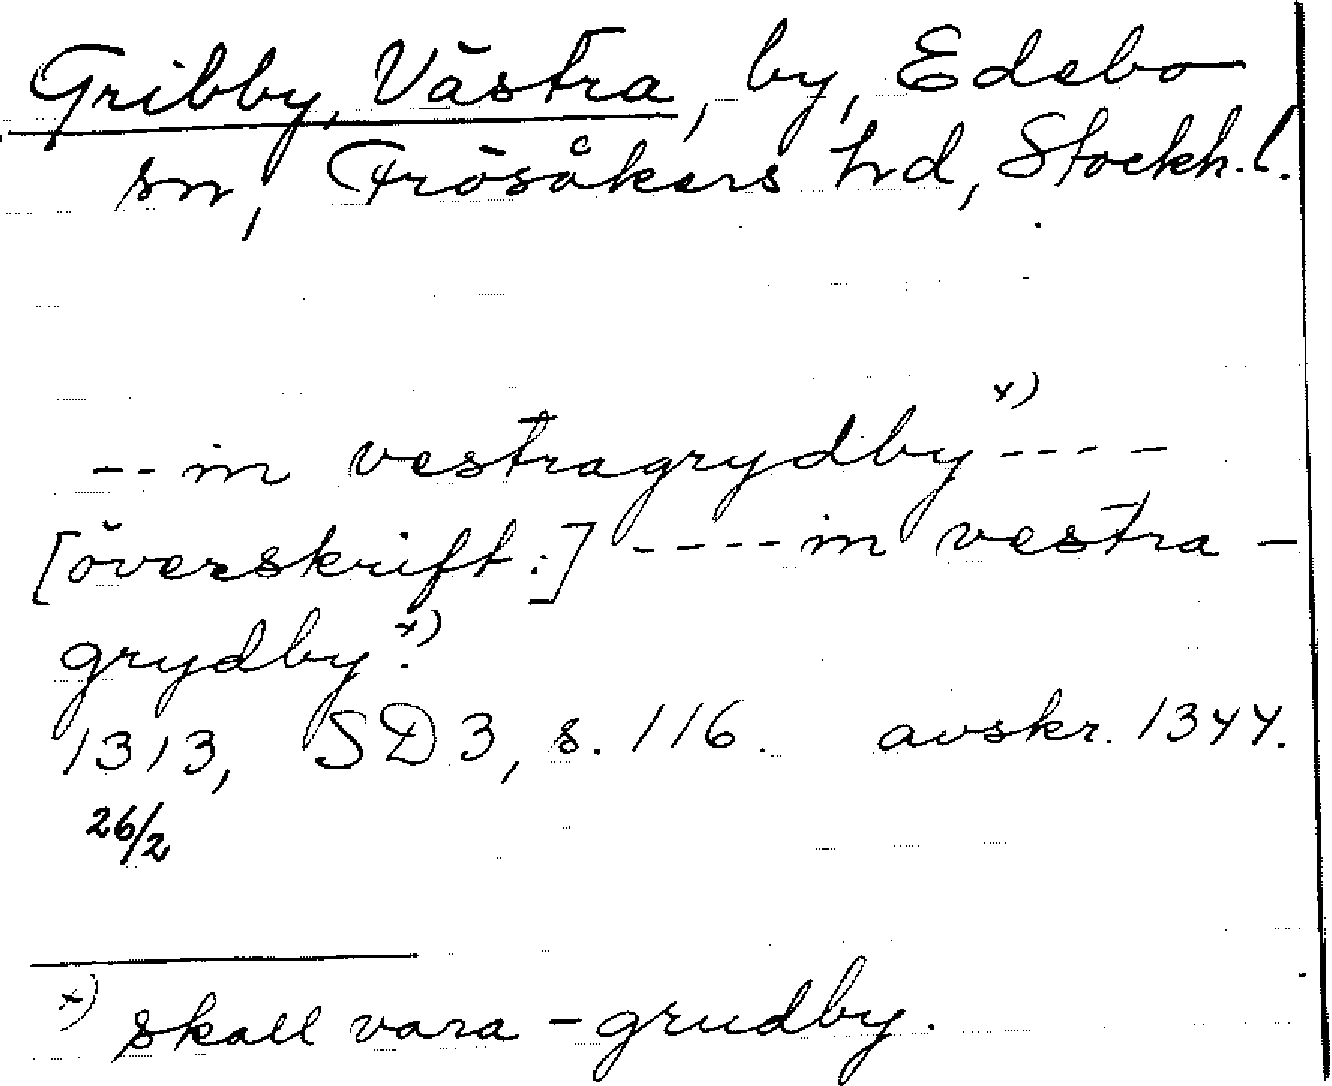 Gribby, Västra, by, Edebo
sn, Frösåkers hd, Stockh. l.
-- in vestragrydby x) ----
[överskrift:] ---- in vestra-
grydby. x)
1313, SD 3, s. 116. avskr. 1344.
26/2
x) skall vara -grudby.